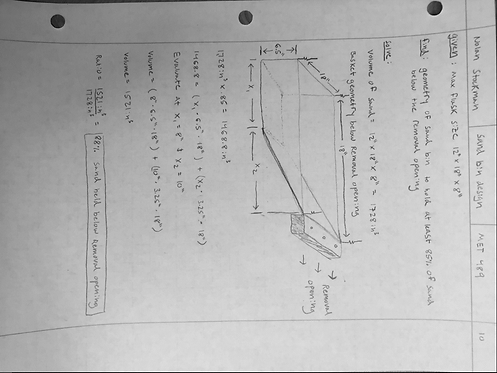 Nolan Stockman
Sand bin design
MET 489
10
given: Max Flask size 12" x 18" x 8"
find: geometry of sand bin to hold at least 85% of sand
below the removal opening
Solve:
Volume of sand = 12" x 18" x 8" = 1728 in³
Basket geometry below removal opening
18"
18"
6.5"
x₁
x₂
Removal
opening
1728 in³ x .85 = 1468.8 in³
1468.8 = (x₁ · 6.5 · 18") + (x₂ · 3.25" · 18")
Evaluate At x₁ = 8" & x₂ = 10"
Volume = (8" · 6.5" · 18") + (10" · 3.25" · 18")
Volume = 1521 in³
Ratio = 1521 in³ / 1728 in³ = 88% sand held below removal opening